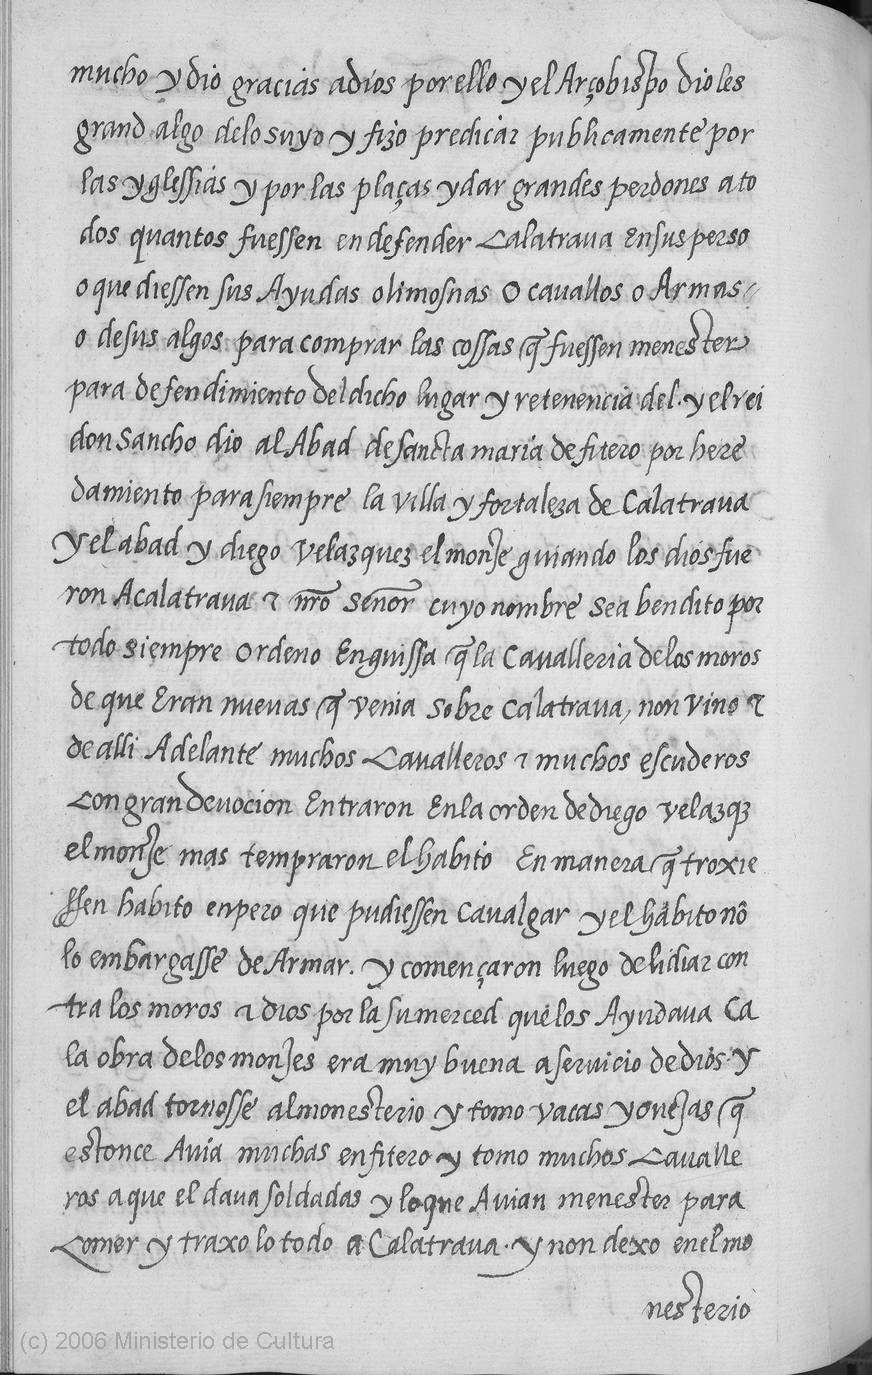 mucho y dio gracias adios por ello y el Arçobispo dioles
grand algo delo suyo y fizo predicar publicamente por
las yglessias y por las plaças y dar grandes perdones a to
dos quantos fuessen en defender Calatraua Ensus perso
o que diessen sus Ayudas o limosnas O cavallos o Armas
o desus algos para comprar las cossas q̃ fuessen menester
para defendimiento del dicho lugar y retenencia del. y el rei
don Sancho dio al Abad de sancta maria de fitero por here
damiento para siempre la villa y fortaleza de Calatraua
Y el abad y diego Velazquez el monje guiando los dios fue
ron Acalatraua τ nr̃o Señor cuyo nombre sea bendito por
todo siempre Ordeno Enguissa q̃ la Cavalleria de los moros
de que Eran nuevas q̃ venia Sobre Calatraua, non Vino τ
de alli Adelante muchos Cavalleros τ muchos escuderos
Con gran Devocion Entraron Enla orden de diego velazq̃z
el monje mas tempraron el habito En manera q̃ troxie
ssen habito enpero que pudiessen Cavalgar y el habito nõ
lo embargasse de Armar. y començaron luego de lidiar con
tra los moros τ dios por la su merced que los Ayudaua Ca
la obra de los monjes era muy buena a seruicio de dios. Y
el abad tornosse al monesterio y tomo vacas y ouejas q̃
estonce Auia muchas en fitero y tomo muchos Cavalle
ros a que el daua soldadas y lo que Auian menester para
Comer y traxo lo todo a Calatraua. Y non dexo enel mo
nesterio
(c) 2006 Ministerio de Cultura